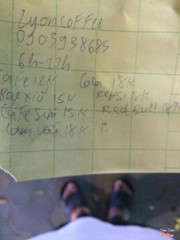 LyonCoFFee
0903938685
6h-17h
Cafe 12K Coca 18K
Bạc xỉu 15K Pepsi 18K
Cafe sữa 15K Red bull 18K
Cam vắt 18K